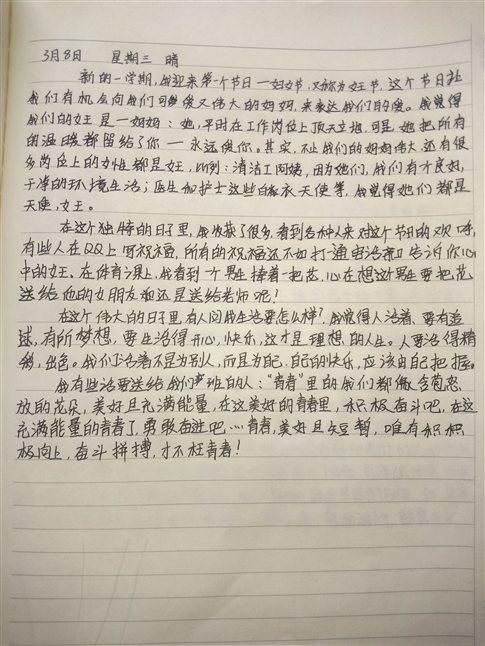 3月8日 星期三 晴
新的一学期,我迎来第一个节日一妇女节,又称为女王节,这个节日让
我们有机会向我们可爱又伟大的妈妈,来表达我们的爱。我觉得
我们的女王是一妈妈:她,平时在工作岗位上顶天立地,可是她把所有
的温暖都留给了你一永远爱你。其实,不止我们的妈妈伟大还有很
多岗位上的女性都是女王,比例:清洁工阿姨,因为她们,我们有才良好,
干净的环境生活;医生和护士这些白衣天使等,我觉得她们都是
天使,女王。
在这个独特的日子里,我收获了很多,看到各种人来对这个节日的欢呼,
有些人在QQ上写祝福,所有的祝福还不如打一通电话亲口告诉你心
中的女王。在体育课上,我看到一个男生捧着一把花,心在想这个男生要把花
送给他的女朋友和还是送给老师呢!
在这个伟大的日子里,有人问我生活要怎么样?我觉得人活着,要有追
逑,有所梦想,要生活得开心,快乐,这才是理想的人生。人要活得精
彩,出色。我们活着不是为别人,而且为自己,自己的快乐,应该由自己把握。
我有些话要送给我们班的人:“青春”里的我们都像含苞怒
放的花朵,美好且充满能量,在这美好的青春里,积极奋斗吧,在这
充满能量的青春了,勇敢奋进吧…青春,美好且短暂,唯有积积
极向上,奋斗拼搏,才不枉青春!